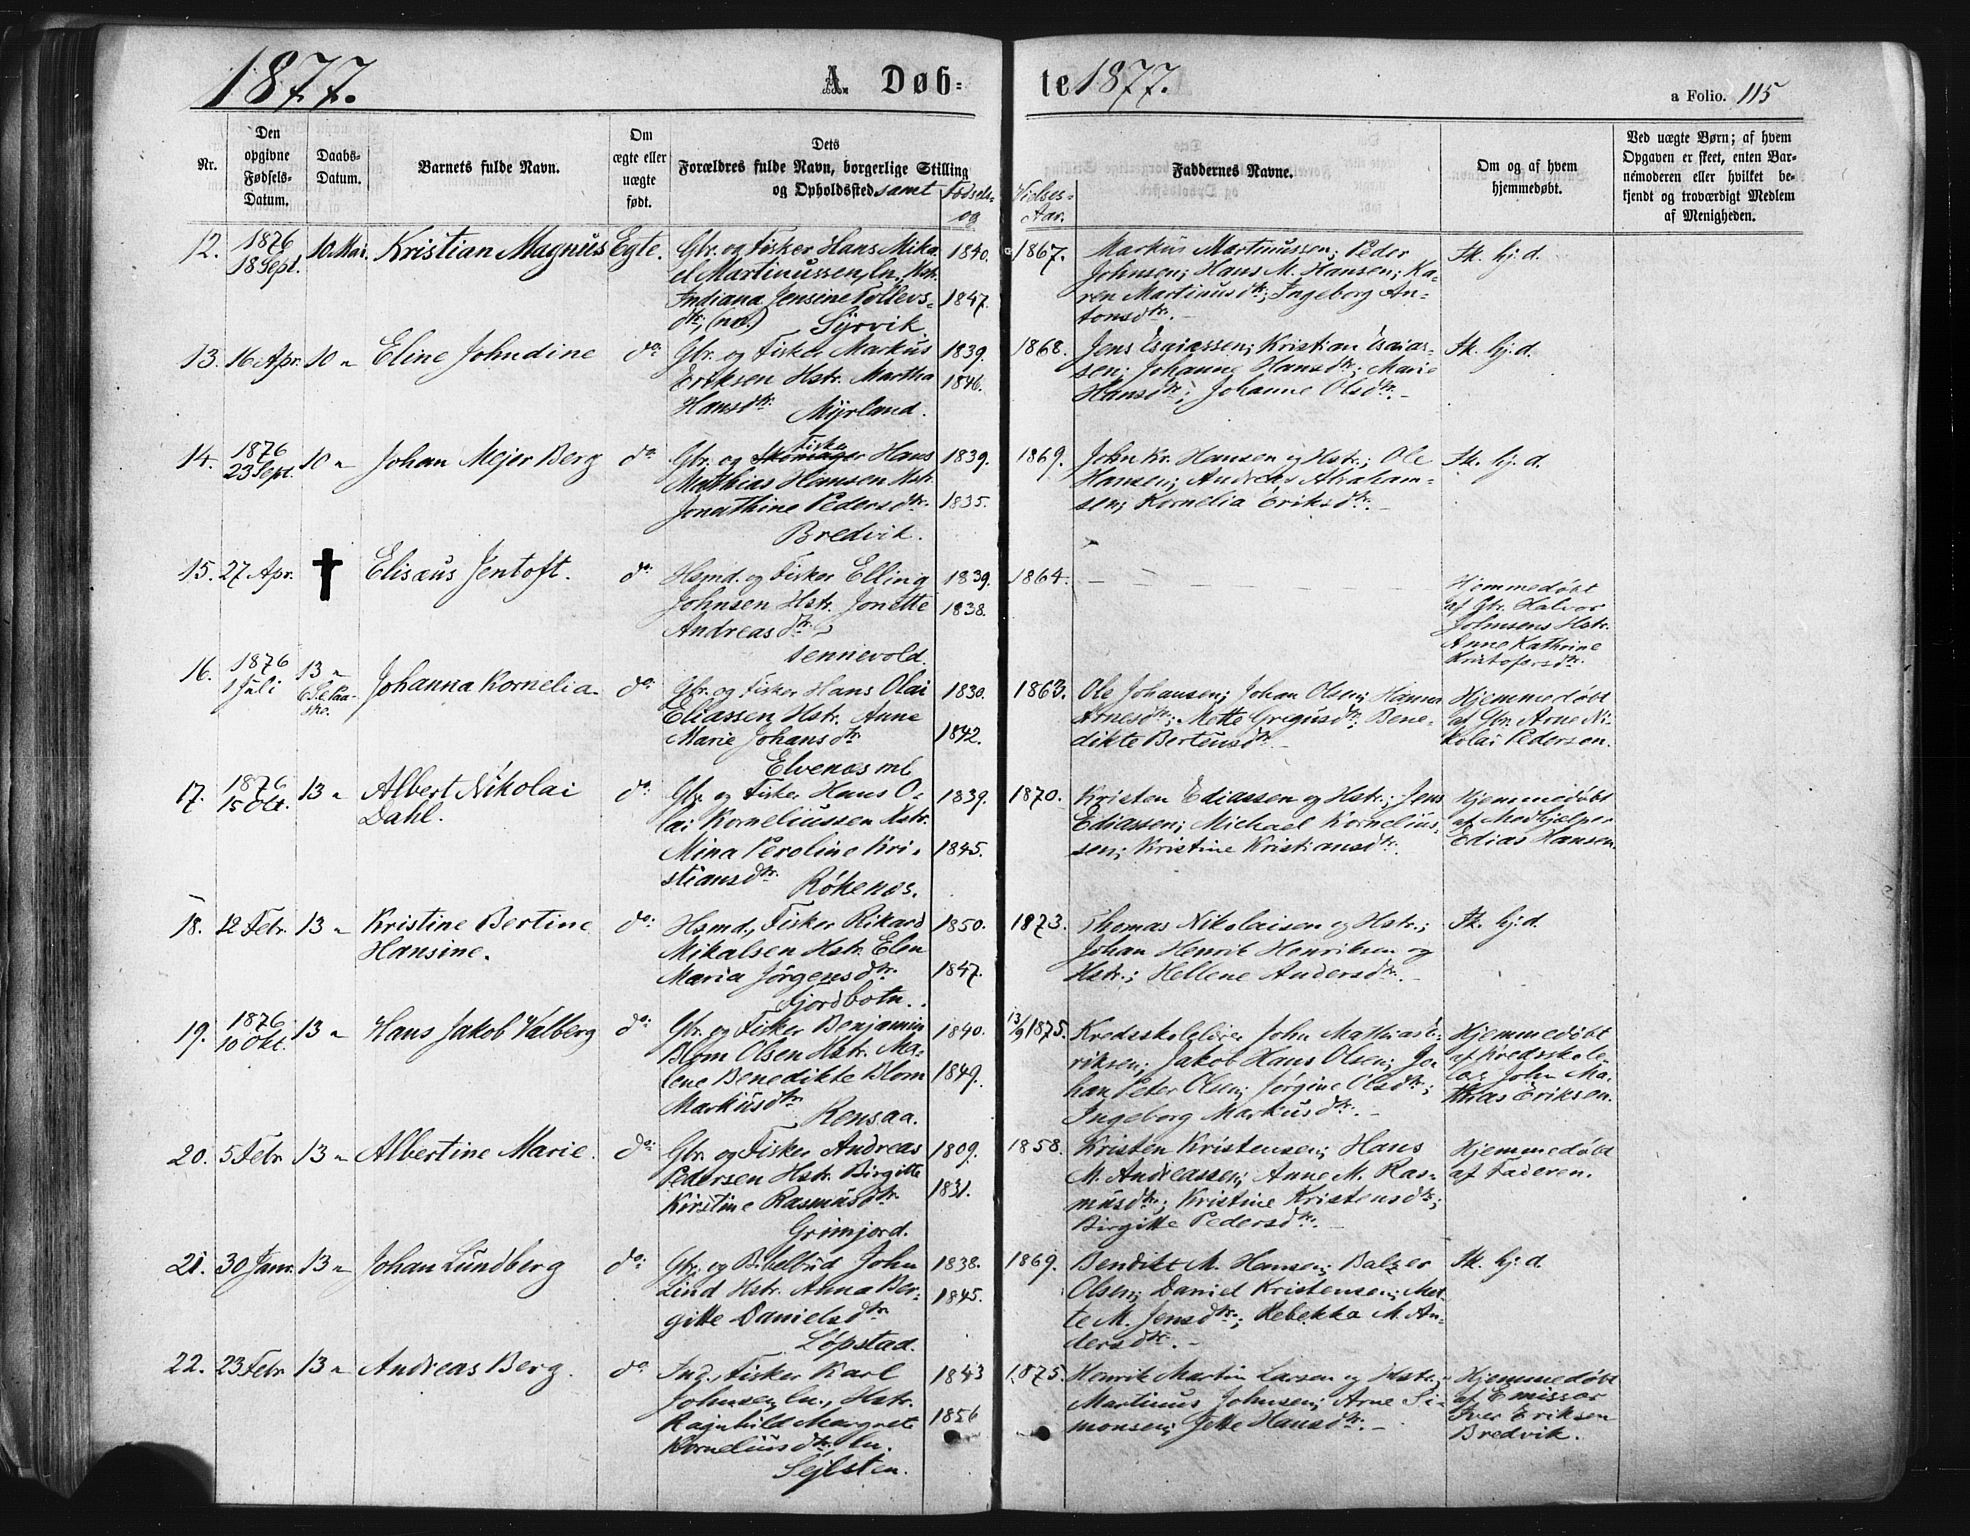 1877. A Døb= te 1877. a Folio. 115
Nr.
Den opgivne Fødsels-Datum.
Daabs-Datum.
Barnets fulde Navn.
Om ægte eller uægte født.
Dets Forældres fulde Navn, borgerlige Stilling og Opholdssted samt Fødsels- og
Vielses-Aar.
Faddernes Navne.
Om og af hvem hjemmedøbt.
Ved uægte Børn; af hvem Opgaven er skeet, enten Barnemoderen eller hvilket bekjendt og troværdigt Medlem af Menigheden.
12. 1876 18 Sept. 10 Mai. Kristian Magnus Egte. Gbr. og Fisker Hans Mika- 1840. 1867. Markus Martinussen; Peder Sk. hj. d.
el Martinussen, ln., Hstr. Johnsen; Hans M. Hansen; Ka-
Indiana Jensine Tollevs- 1847. ren Martinusdtr; Ingeborg An-
dtr; (no.) Syrvik. tonsdtr. -
13. 16 Apr. 10 " Eline Johndine do: Gbr. og Fisker Markus 1839. 1868. Jens Esaiassen; Kristian Esaias- Sk. hj. d.
Eriksen Hstr. Martha 1846. sen; Johanne Hansdtr; Marie
Hansdtr. Myrland. Hansdtr; Johanne Olsdtr. -
14. 1876 23 Sept. 10 " Johan Mejer Berg do: Gbr. og Skomager Fisker Hans 1839. 1869. John Kr. Hansen og Hstr.; Ole Sk. hj. d.
Mathias Hansen Hstr. Hansen; Andreas Abraham-
Jonathine Pedersdtr. 1835. sen; Kornelia Eriksdtr. -
Bredvik.
15. 27 Apr. ✝ Elisæus Jentoft. do: Hsmd. og Fisker Elling 1839. 1864. - - - - - Hjemmedøbt
Johnsen Hstr. Jonette 1838. af Gbr. Halvor
Andreasdtr. Johnsens Hstr.
Sennevold. Anne Kathrine
Kristofersdtr.
16. 1876 1 Juli 13 " Johanna Kornelia. do: Gbr. og Fisker Hans Olai 1830. 1863. Ole Johansen; Johan Olsen; Hanna Hjemmedøbt
Eliassen Hstr. Anne Arnesdtr; Mette Gregusdtr; Bene- af Gbr. Arne Ni-
Marie Johansdtr. 1842. dikte Bertensdtr. - kolai Pedersen.
Elvenæs ml
17. 1876 15 Okt. 13 " Albert Nikolai do: Gbr. og Fisker Hans O- 1839. 1870. Kristen Ediassen og Hstr.; Jens Hjemmedøbt
Dahl. lai Korneliussen Hstr. Ediassen; Michael Kornelius- af Medhjælper
Mina Peroline Kri- 1845. sen; Kristine Kristiansdtr. Edias Hansen.
stiansdtr. Røkenæs.
18. 12 Febr. 13 " Kristine Bertine do: Hsmd., Fisker Rikard 1850. 1873. Thomas Nikolaisen og Hstr.; Sk. hj. d.
Hansine. Mikalsen Hstr. Elen Johan Henrik Henriksen og
Maria Jørgensdtr. 1847. Hstr.; Hellene Andersdtr. -
Fjordbotn.
19. 1876 10 Okt. 13 " Hans Jakob Valberg do: Gbr. og Fisker Benjamin 1840. 13/9 1875. Kredsskolelærer John Mathias E- Hjemmedøbt
Blom Olsen Hstr. Ma- riksen; Jakob Hans Olsen; Jo- af Kredsskole-
lene Benedikte Blom 1849. han Peter Olsen; Jørgine Olsdtr; lær John Ma-
Markusdtr. Rensaa. Ingeborg Markusdtr. - thias Eriksen.
20. 5 Febr. 13 " Albertine Marie. do: Gbr. og Fisker Andreas 1809. 1858. Kristen Kristensen; Hans Hjemmedøbt
Pedersen Hstr. Birgitte M. Andreassen; Anne M. Ras- af Faderen.
Kirstine Rasmusdtr. 1831. musdtr; Kristine Kristensdtr;
Grimjord. Birgitte Pedersdtr. -
21. 30 Janr. 13 " Johan Lundberg do: Gbr. og Bibelbud John 1838. 1869. Bendikt M. Hansen; Balzer Sk. hj. d.
Lind Hstr. Anna Ber- 1845. Olsen; Daniel Kristensen; Met-
gitte Danielsdtr. te M. Jensdtr; Rebekka M. An-
Løpstad. dersdtr. -
22. 23 Febr. 13 " Andreas Berg. do Ind., Fisker Karl 1843 1875. Henrik Martin Larsen og Hstr.; Hjemmedøbt
Johnsen, ln., Hstr. Martinus Johnsen; Arne Si- af Emissær
Ragnhild Margrete 1856 monsen; Jette Hansdtr. - Iver Eriksen
Korneliusdtr. ln. Bredvik.
Sejlsten.